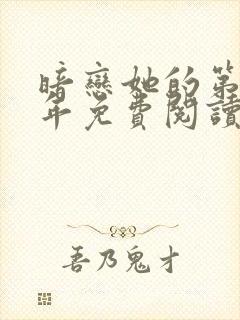 暗戀她的第
年免費閱讀
吾乃鬼才